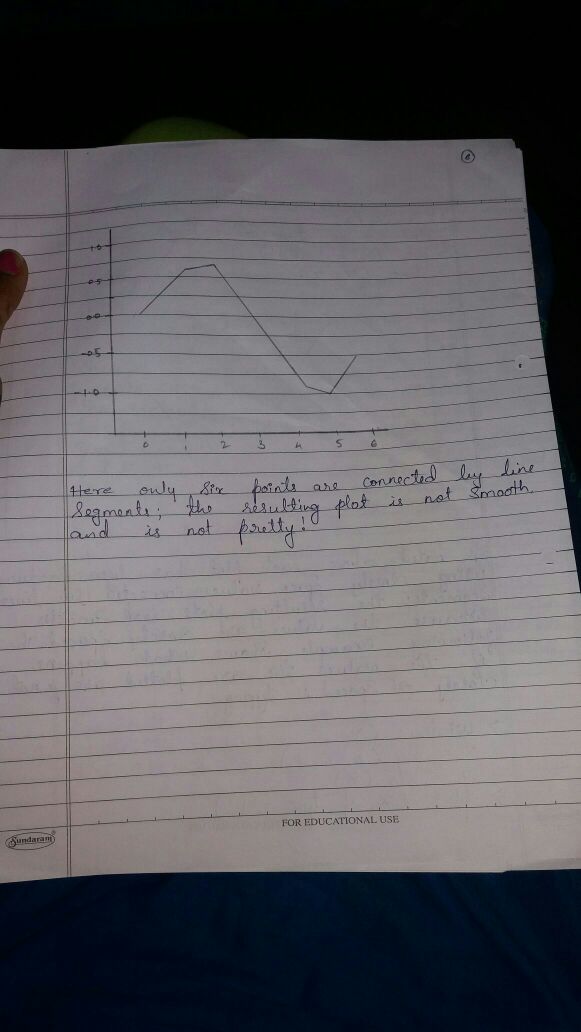 1.0
0.5
0.0
-0.5
-1.0
0 1 2 3 4 5 6
Here only six points are connected by line
Segments; the resulting plot is not Smooth.
and is not pretty!
FOR EDUCATIONAL USE
Sundaram